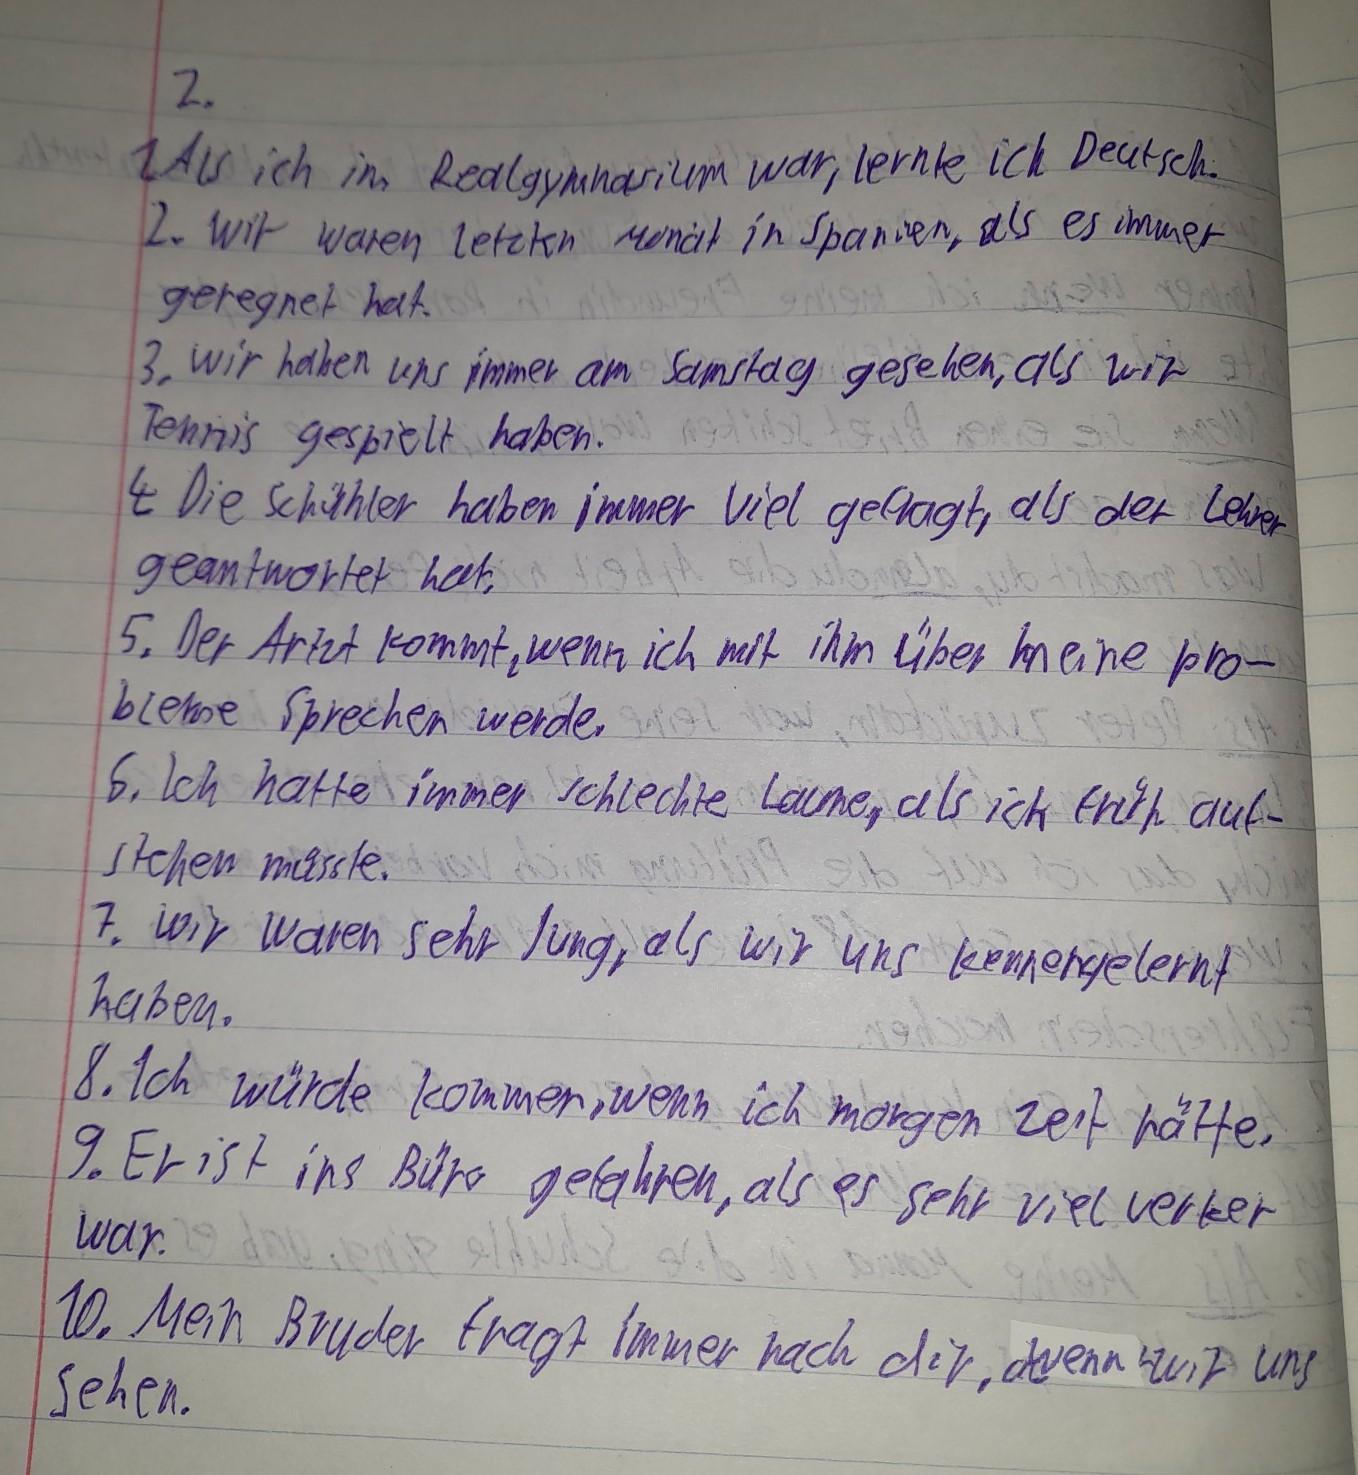 2.
1 Als ich im Realgymnasium war, lernte ich Deutsch.
2. Wir waren letzten Monat in Spanien, als es immer
geregnet hat.
3. Wir haben uns immer am Samstag gesehen, als wir
Tennis gespielt haben.
4 Die Schühler haben immer viel gefragt, als der Lehrer
geantwortet hat.
5. Der Artzt kommt, wenn ich mit ihm über meine pro-
bleme sprechen werde.
6. Ich hatte immer schlechte Laune, als ich früh auf-
stehen musste.
7. Wir waren sehr Jung, als wir uns kennengelernt
haben.
8. Ich würde kommen, wenn ich morgen zeit hätte.
9. Er ist ins Büro gefahren, als es sehr viel verker
war.
10. Mein Bruder fragt immer nach dir, wenn wir uns
sehen.